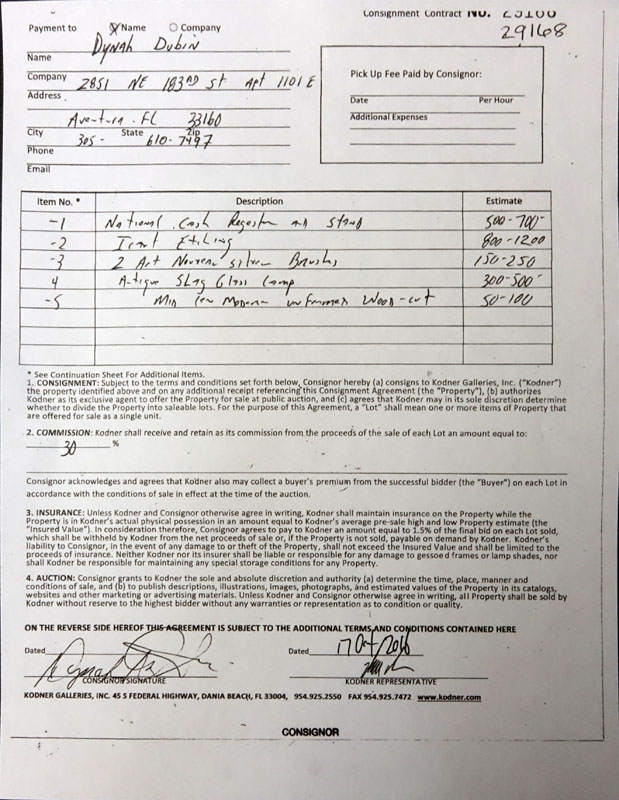 Consignment Contract NO. 25100
29168
Payment to Name Company
Dynah Dubin
Name
Company 2851 NE 183RD St Apt 1101 E
Address
Aventura FL 33160
City State Zip
305- 610-7497
Phone
Email
Pick Up Fee Paid by Consignor:
Date Per Hour
Additional Expenses
Item No. * Description Estimate
-1 National Cash Register and Stand 500-700-
-2 Icart Etching 800-1200
-3 2 Art Nouveau silver Brushes 150-250
4 Antique Slag Glass Lamp 300-500-
-5 unframed Wood-cut 50-100
* See Continuation Sheet For Additional Items.
1. CONSIGNMENT: Subject to the terms and conditions set forth below, Consignor hereby (a) consigns to Kodner Galleries, Inc. ("Kodner")
the property identified above and on any additional receipt referencing this Consignment Agreement (the "Property"), (b) authorizes
Kodner as its exclusive agent to offer the Property for sale at public auction, and (c) agrees that Kodner may in its sole discretion determine
whether to divide the Property into saleable lots. For the purpose of this Agreement, a "Lot" shall mean one or more items of Property that
are offered for sale as a single unit.
2. COMMISSION: Kodner shall receive and retain as its commission from the proceeds of the sale of each Lot an amount equal to:
30 %
Consignor acknowledges and agrees that Kodner also may collect a buyer's premium from the successful bidder (the "Buyer") on each Lot in
accordance with the conditions of sale in effect at the time of the auction.
3. INSURANCE: Unless Kodner and Consignor otherwise agree in writing, Kodner shall maintain insurance on the Property while the
Property is in Kodner's actual physical possession in an amount equal to Kodner's average pre-sale high and low Property estimate (the
"Insured Value"). In consideration therefore, Consignor agrees to pay to Kodner an amount equal to 1.5% of the final bid on each Lot sold,
which shall be withheld by Kodner from the net proceeds of sale or, if the Property is not sold, payable on demand by Kodner. Kodner's
liability to Consignor, in the event of any damage to or theft of the Property, shall not exceed the Insured Value and shall be limited to the
proceeds of insurance. Neither Kodner nor its insurer shall be liable or responsible for any damage to gessoed frames or lamp shades, nor
shall Kodner be responsible for maintaining any special storage conditions for any Property.
4. AUCTION: Consignor grants to Kodner the sole and absolute discretion and authority (a) determine the time, place, manner and
conditions of sale, and (b) to publish descriptions, illustrations, images, photographs, and estimated values of the Property in its catalogs,
websites and other marketing or advertising materials. Unless Kodner and Consignor otherwise agree in writing, all Property shall be sold by
Kodner without reserve to the highest bidder without any warranties or representation as to condition or quality.
ON THE REVERSE SIDE HEREOF THIS AGREEMENT IS SUBJECT TO THE ADDITIONAL TERMS AND CONDITIONS CONTAINED HERE
Dated Dated 17 Oct/2016
CONSIGNOR SIGNATURE KODNER REPRESENTATIVE
KODNER GALLERIES, INC. 45 S FEDERAL HIGHWAY, DANIA BEACH, FL 33004, 954.925.2550 FAX 954.925.7472 www.kodner.com
CONSIGNOR